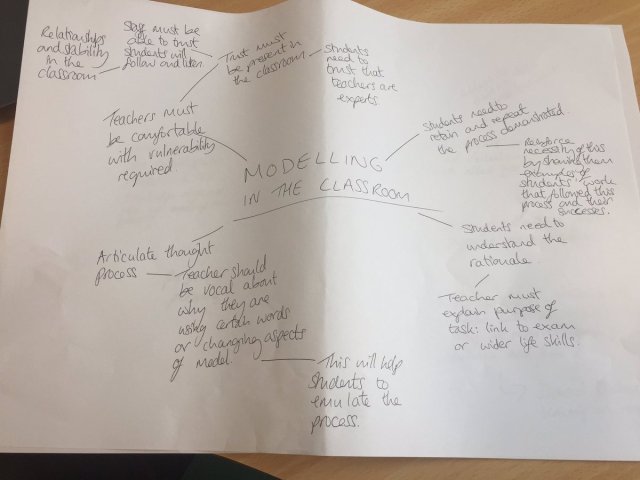 Relationships
and stability
in the
classroom
Staff must be
able to trust
students will
follow and listen.
Trust must
be present in
the classroom
Students
need to
trust that
teachers are
experts.
Teachers must
be comfortable
with vulnerability
required.
MODELLING
IN THE CLASSROOM
Students need to
retain and repeat
the process demonstrated.
Reinforce
necessity of this
by showing them
examples of
students' work
that followed this
process and their
successes.
Students need to
understand the
rationale.
Teacher must
explain purpose of
task: link to exam
or wider life skills.
Articulate thought
process
Teacher should
be vocal about
why they are
using certain words
or changing aspects
of model.
This will help
students to
emulate the
process.